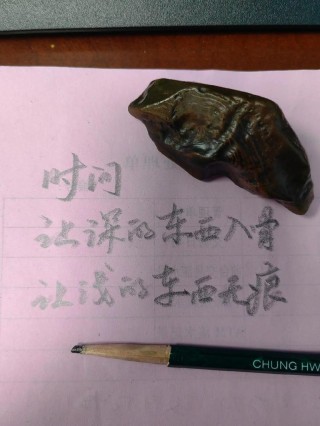 时间
让深的东西入骨
让浅的东西无痕
CHUNG HW